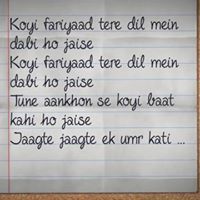 Koyi fariyaad tere dil mein
dabi ho jaise
Koyi fariyaad tere dil mein
dabi ho jaise
Tune aankhon se koyi baat
kahi ho jaise
Jaagte jaagte ek umr kati ...